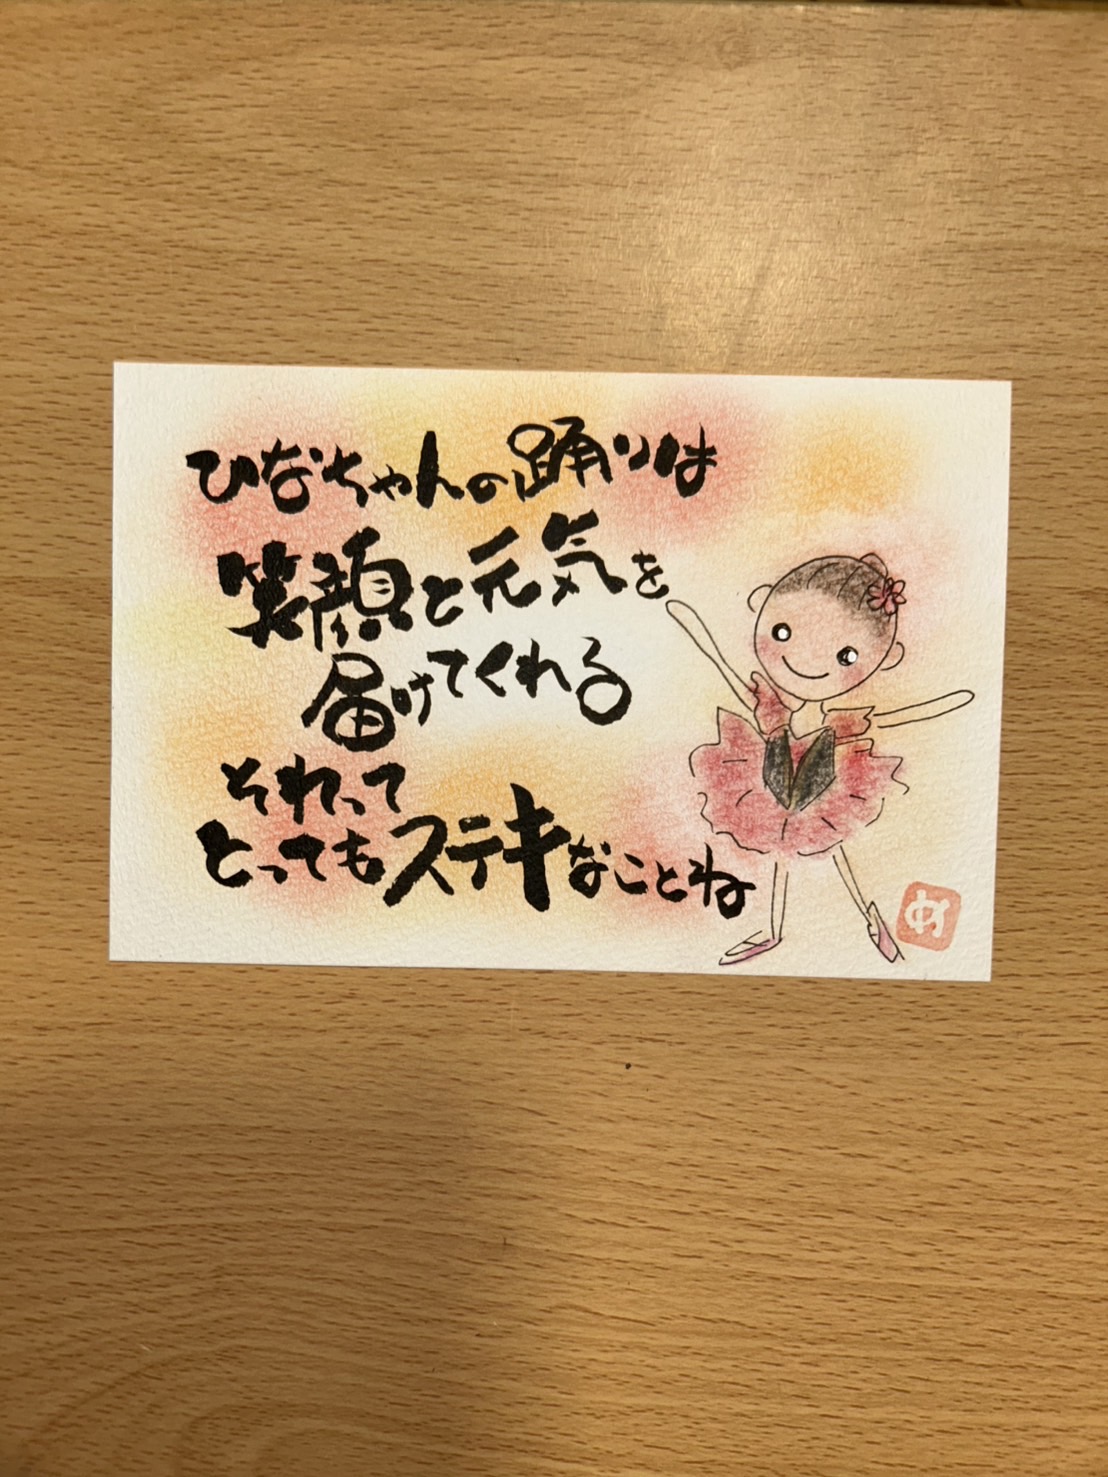 ひなちゃんの踊りは
笑顔と元気を
届けてくれる
それって
とってもステキなことね